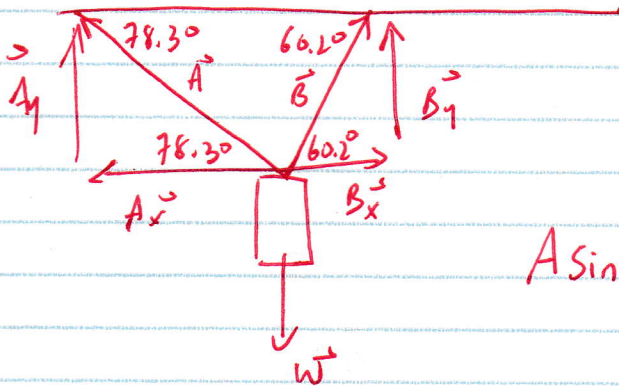 78.3° 60.2°
A⃗y A⃗ B⃗ B⃗y
78.3° 60.2°
A⃗x B⃗x
A sin
W⃗